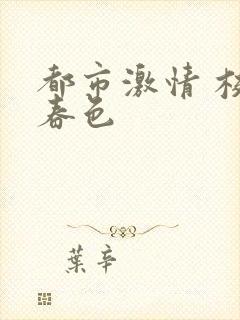 都市激情 校
春色
葉辛